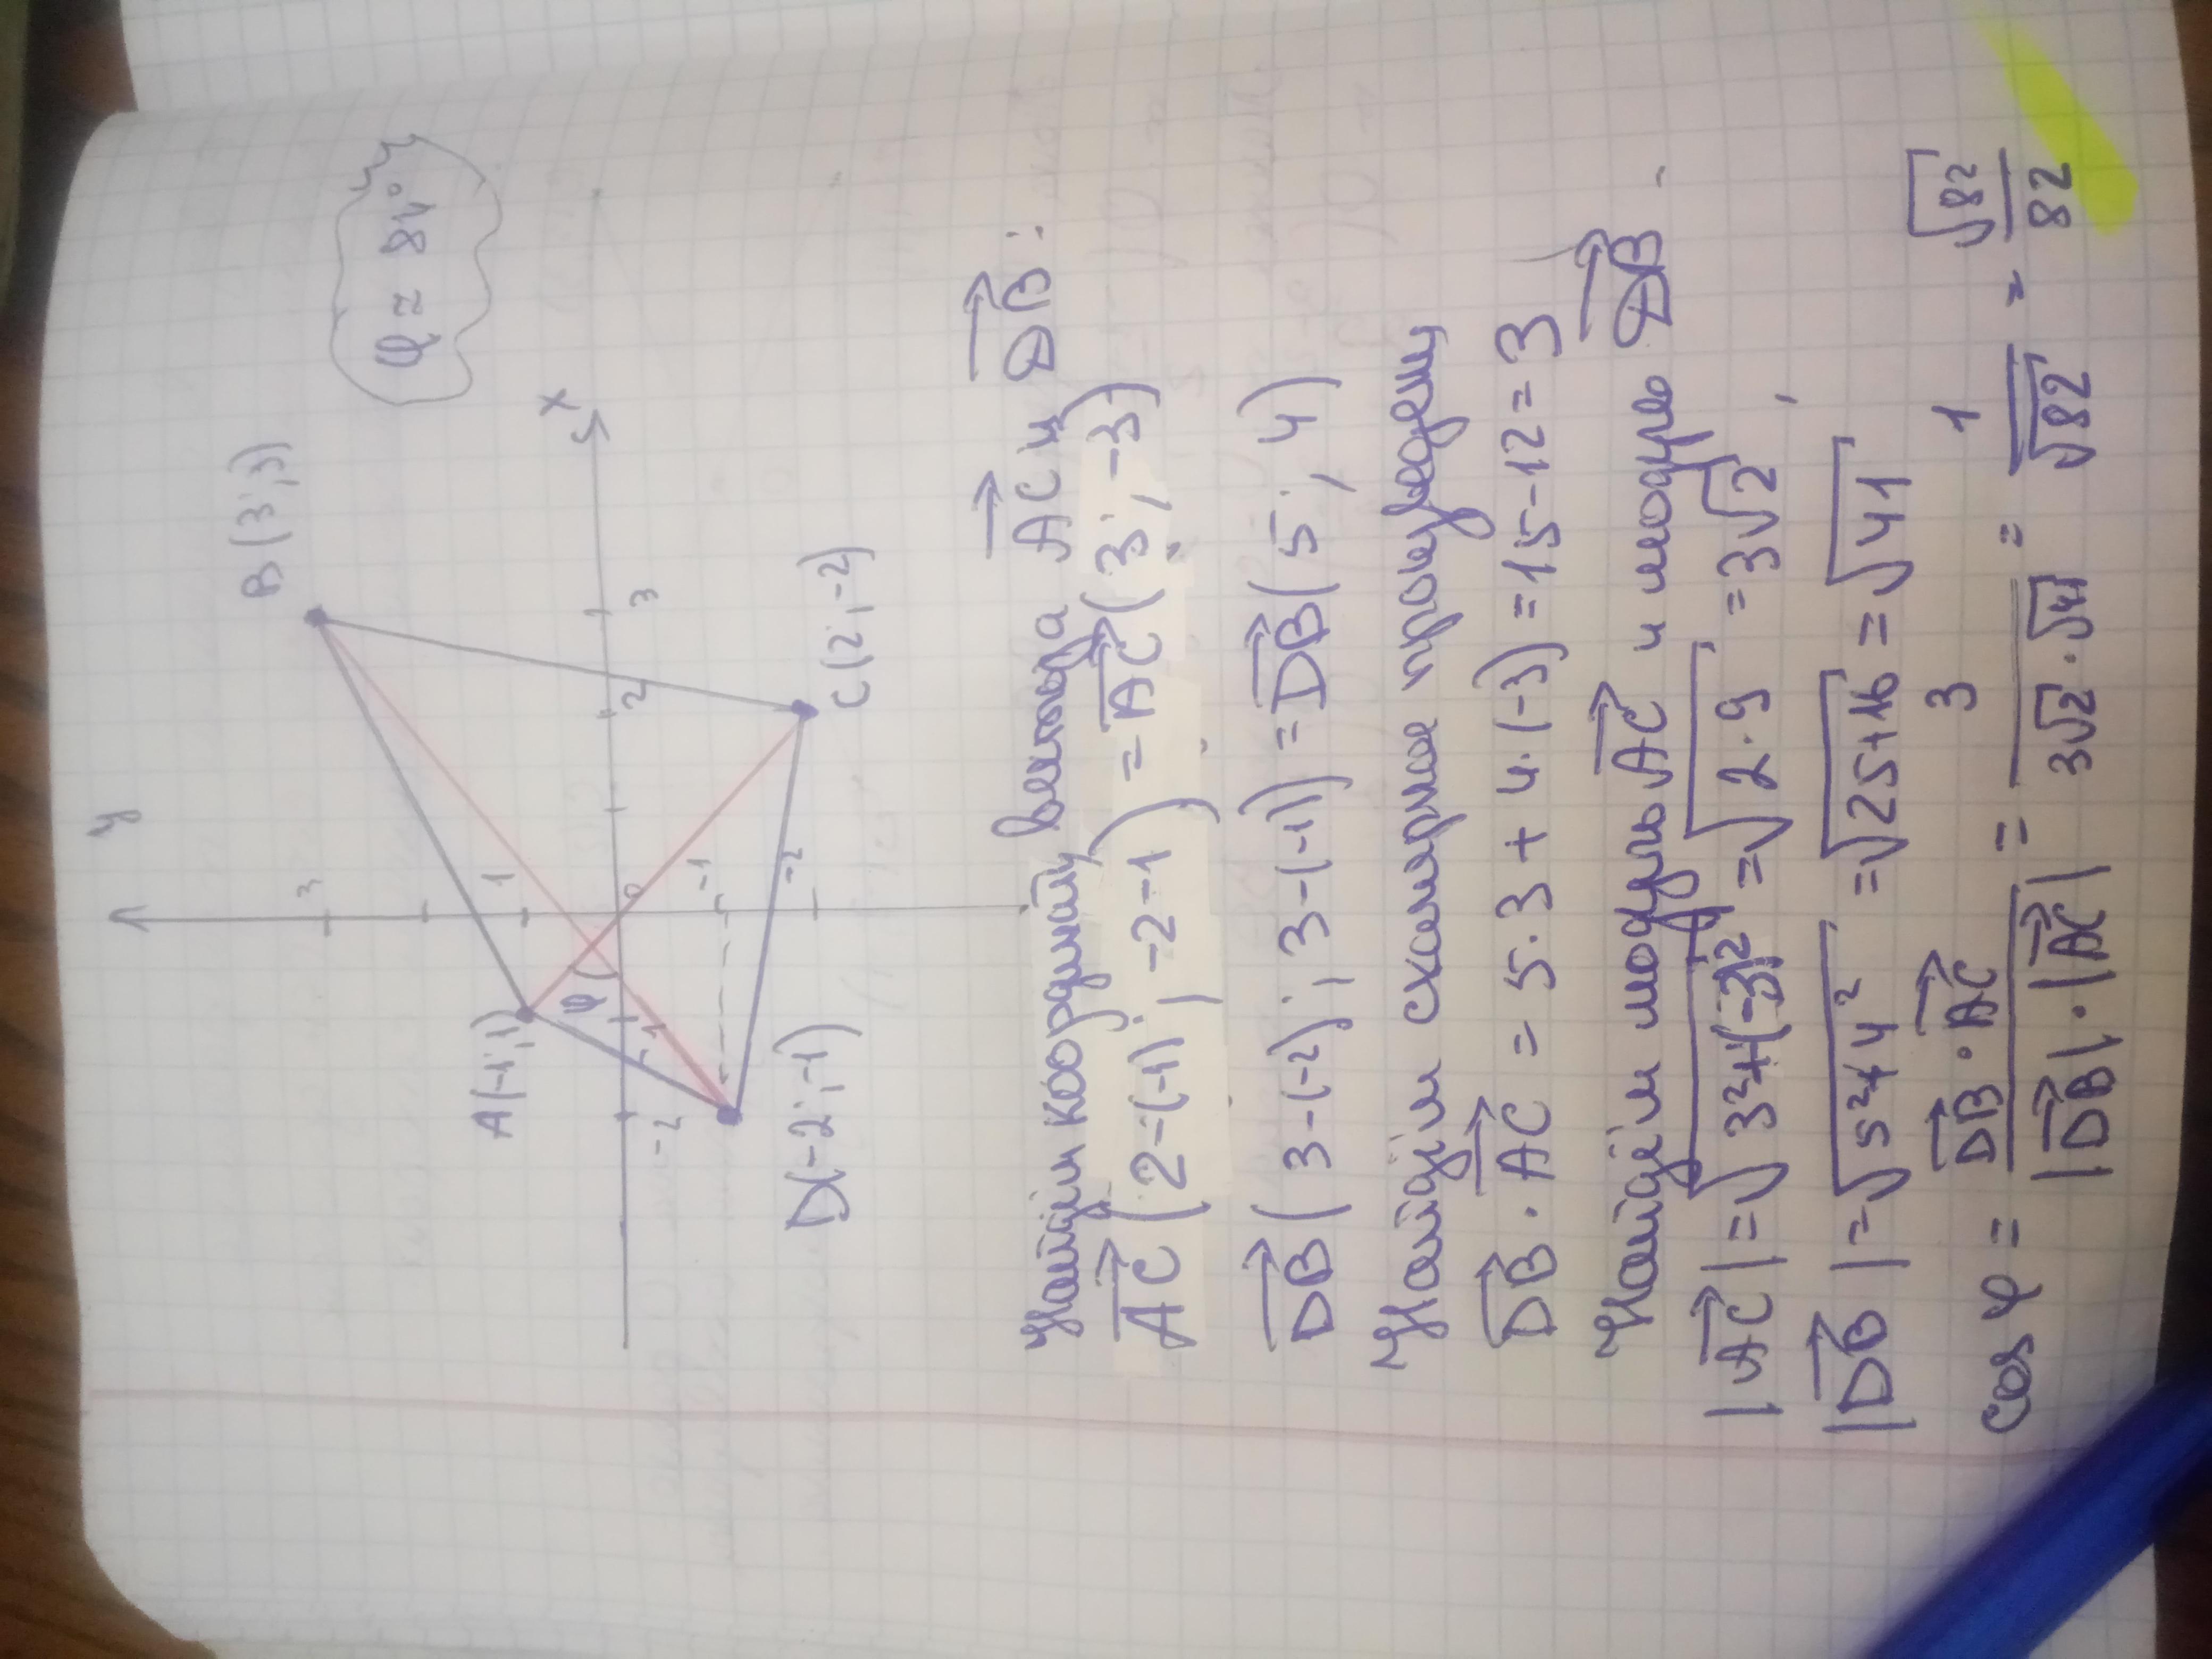 φ ≈ 84°
y
B(3;3)
x
3
1
A(-1;1)
φ
0
2
3
-1
-2
-1
-2
C(2;-2)
D(-2;-1)
Найдём координаты вектора AC и DB:
AC(2-(-1); -2-1) = AC(3; -3)
DB(3-(-2); 3-(-1)) = DB(5; 4)
Найдём скалярное произведение
DB · AC = 5·3 + 4·(-3) = 15-12 = 3
Найдём модуль AC и модуль DB.
|AC| = √3²+(-3)² = √2·9 = 3√2,
|DB| = √5²+4² = √25+16 = √41
cos φ = DB·AC / |DB|·|AC| = 3 / 3√2·√41 = 1 / √82 = √82 / 82